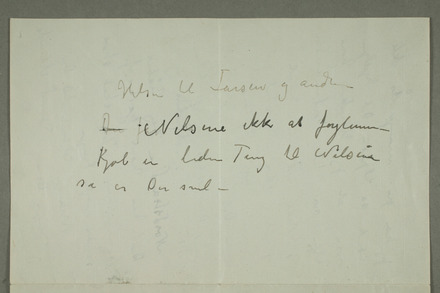 Hilsen til Larsen og andre
Nilsine ikke at forglemme
Kjøb en liden Ting til Nilsine
sa er Du snil –